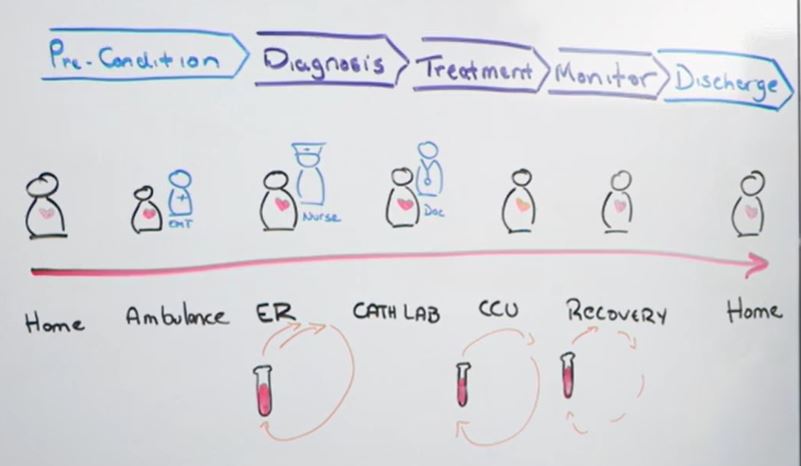 Pre-Condition
Diagnosis
Treatment
Monitor
Discharge
EMT
Nurse
Doc
Home
Ambulance
ER
CATH LAB
CCU
RECOVERY
Home